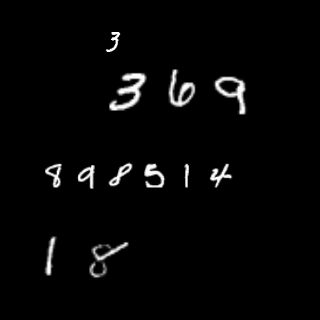 3
369
898514
18